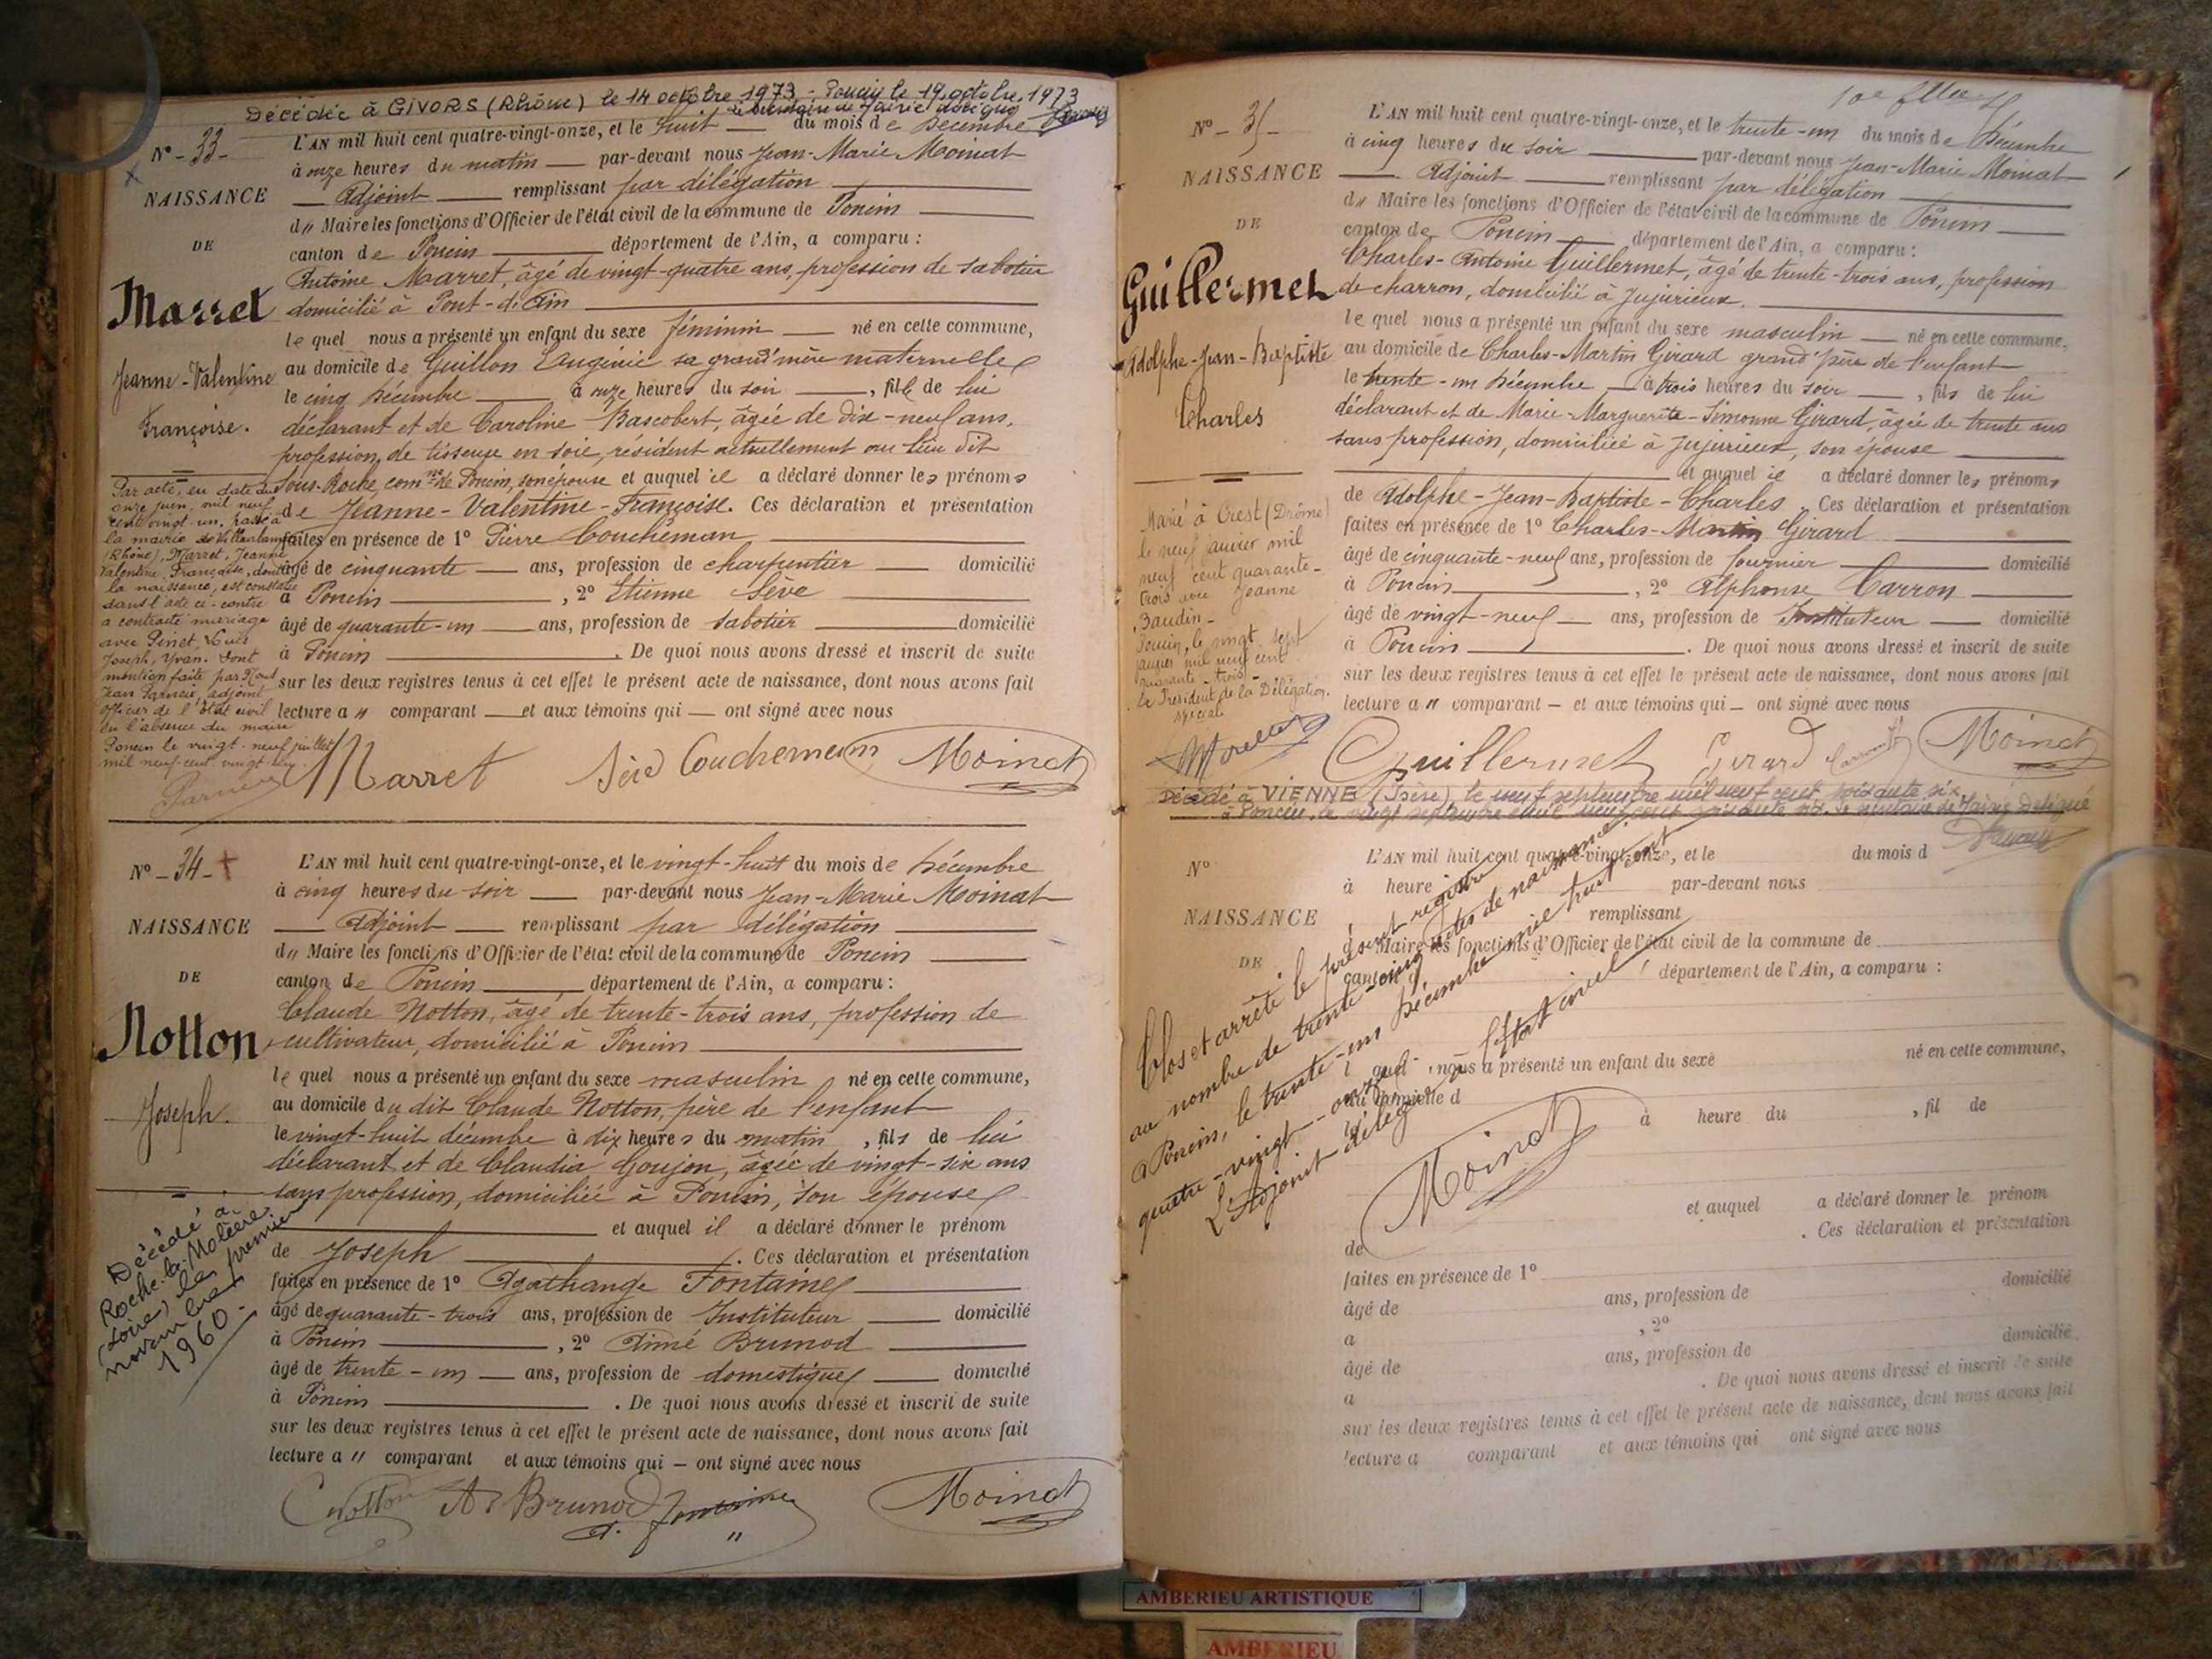 Décédée à GIVORS (Rhône) le 14 octobre 1973 - Poncin le 19 octobre 1973
Le Secrétaire de Mairie délégué
N° - 33 -
NAISSANCE
DE
Marret
Jeanne-Valentine
Françoise.
L'AN mil huit cent quatre-vingt-onze, et le huit du mois de Décembre
à onze heures du matin par-devant nous Jean-Marie Moinat
Adjoint remplissant par délégation
d" Maire les fonctions d'Officier de l'état civil de la commune de Poncin
canton de Poncin département de l'Ain, a comparu :
Antoine Marret, âgé de vingt-quatre ans, profession de sabotier
domicilié à Pont-d'Ain
lequel nous a présenté un enfant du sexe féminin né en cette commune,
au domicile de Guillon Eugénie sa grand'mère maternelle
le cinq Décembre à onze heures du soir, fille de lui
déclarant et de Caroline Bascobert, âgée de dix-neuf ans,
profession de tisseuse en soie, résident actuellement au lieu dit
Sous-Roche, comne de Poncin, son épouse et auquel il a déclaré donner les prénoms
de Jeanne-Valentine-Françoise. Ces déclaration et présentation
faites en présence de 1° Pierre Coucheman
âgé de cinquante ans, profession de charpentier domicilié
à Poncin, 2° Etienne Sève
âgé de quarante-un ans, profession de sabotier domicilié
à Poncin. De quoi nous avons dressé et inscrit de suite
sur les deux registres tenus à cet effet le présent acte de naissance, dont nous avons fait
lecture a " comparant et aux témoins qui ont signé avec nous
Par acte, en date du
onze juin mil neuf
cent vingt-un, passé à
la mairie de
(Rhône), Marret, Jeanne
Valentine, Françoise, dont
la naissance, est constatée
dans l'acte ci-contre
a contracté mariage
avec Pinet, Louis
Joseph, Yvan. Dont
mention faite par Nous
Jean, adjoint
officier de l'Etat civil
en l'absence du maire
Poncin le vingt-neuf juillet
mil neuf cent vingt-un.
Marret Sève Coucheman Moinat
N° - 34 -
NAISSANCE
DE
Notton
Joseph.
L'AN mil huit cent quatre-vingt-onze, et le vingt-huit du mois de Décembre
à cinq heures du soir par-devant nous Jean-Marie Moinat
Adjoint remplissant par délégation
d" Maire les fonctions d'Officier de l'état civil de la commune de Poncin
canton de Poncin département de l'Ain, a comparu :
Claude Notton, âgé de trente-trois ans, profession de
cultivateur, domicilié à Poncin
lequel nous a présenté un enfant du sexe masculin né en cette commune,
au domicile du dit Claude Notton, père de l'enfant
le vingt-huit décembre à dix heures du matin, fils de lui
déclarant et de Claudia Goujon, âgée de vingt-six ans
sans profession, domiciliée à Poncin, son épouse
et auquel il a déclaré donner le prénom
de Joseph. Ces déclaration et présentation
faites en présence de 1° Agathange Fontaine
âgé de quarante-trois ans, profession de Instituteur domicilié
à Poncin, 2° Aimé Brunod
âgé de trente-un ans, profession de domestique domicilié
à Poncin. De quoi nous avons dressé et inscrit de suite
sur les deux registres tenus à cet effet le présent acte de naissance, dont nous avons fait
lecture a " comparant et aux témoins qui ont signé avec nous
Décédé à
Roche-la-Molière
(Loire) le premier
novembre
1960.
Notton A. Brunod A. Fontaine Moinat
N° - 35 -
NAISSANCE
DE
Guillermet
Adolphe-Jean-Baptiste
Charles
L'AN mil huit cent quatre-vingt-onze, et le trente-un du mois de Décembre
à cinq heures du soir par-devant nous Jean-Marie Moinat
Adjoint remplissant par délégation
d" Maire les fonctions d'Officier de l'état civil de la commune de Poncin
canton de Poncin département de l'Ain, a comparu :
Charles-Antoine Guillermet, âgé de trente-trois ans, profession
de charron, domicilié à Jujurieux.
lequel nous a présenté un enfant du sexe masculin né en cette commune,
au domicile de Charles-Martin Girard grand'père de l'enfant
le trente-un Décembre à trois heures du soir, fils de lui
déclarant et de Marie-Marguerite-Simonne Girard, âgée de trente ans
sans profession, domiciliée à Jujurieux, son épouse
et auquel il a déclaré donner les prénoms
de Adolphe-Jean-Baptiste-Charles. Ces déclaration et présentation
faites en présence de 1° Charles-Martin Girard
âgé de cinquante-neuf ans, profession de fournier domicilié
à Poncin, 2° Alphonse Carron
âgé de vingt-neuf ans, profession de Instituteur domicilié
à Poncin. De quoi nous avons dressé et inscrit de suite
sur les deux registres tenus à cet effet le présent acte de naissance, dont nous avons fait
lecture a " comparant et aux témoins qui ont signé avec nous
Marié à Crest (Drôme)
le neuf janvier mil
neuf cent quarante-
trois avec Jeanne
Baudin -
Poncin, le vingt sept
janvier mil neuf cent
quarante-trois -
Le Président de la Délégation
spéciale
Guillermet Girard Carron Moinat
Décédé à VIENNE (Isère) le neuf septembre mil neuf cent soixante six
à Poncin, le vingt septembre mil neuf cent soixante six. Le secrétaire de Mairie Délégué
N°
NAISSANCE
DE
L'AN mil huit cent quatre-vingt-onze, et le du mois d
à heure par-devant nous
remplissant
d Maire les fonctions d'Officier de l'état civil de la commune de
canton d département de l'Ain, a comparu :
l quel nous a présenté un enfant du sexe né en cette commune,
au domicile d
le à heure du, fil de
et auquel a déclaré donner le prénom
de. Ces déclaration et présentation
faites en présence de 1° domicilié
âgé de ans, profession de
a, 2°
âgé de ans, profession de domicilié
a. De quoi nous avons dressé et inscrit de suite
sur les deux registres tenus à cet effet le présent acte de naissance, dont nous avons fait
lecture a comparant et aux témoins qui ont signé avec nous
Clos et arrêté le présent registre
au nombre de trente-cinq actes de naissance
à Poncin, le trente-un Décembre mil huit cent
quatre-vingt-onze
L'Adjoint délégué à l'Etat civil
Moinat
AMBERIEU ARTISTIQUE
AMBERIEU